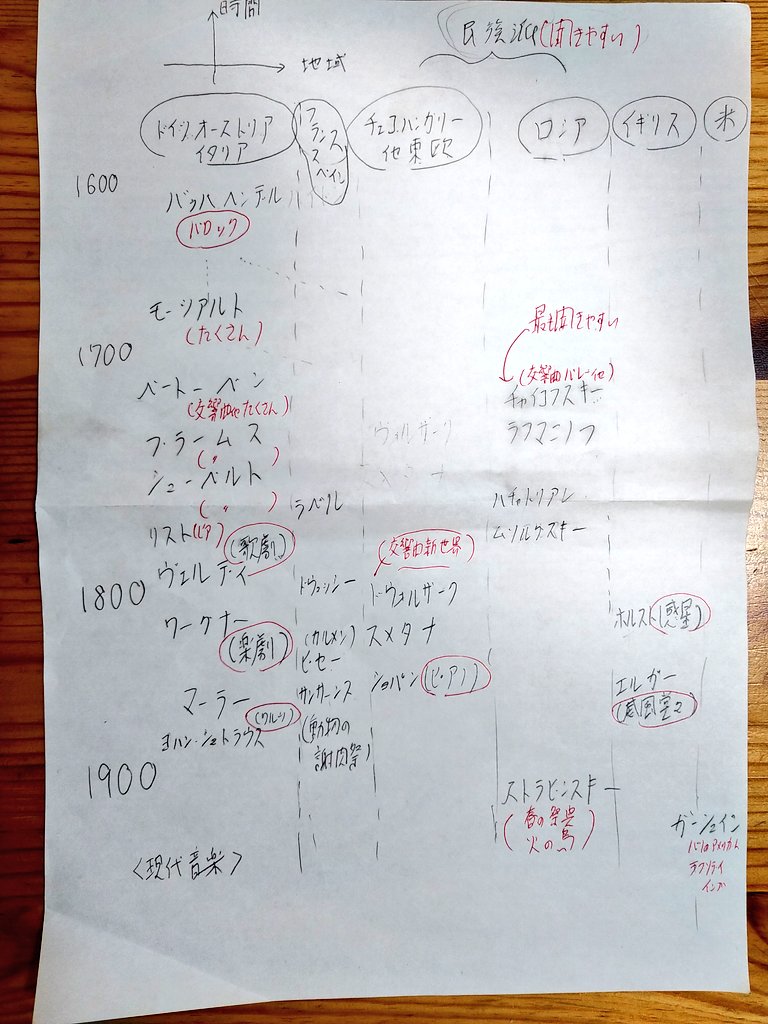 時間
地域
民族派(聞きやすい)
ドイツ、オーストリア
イタリア
フランス
スペイン
チェコ、ハンガリー
他東欧
ロシア
イギリス
米
1600
バッハ、ヘンデル
バロック
モーツアルト
(たくさん)
1700
最も聞きやすい
ベートーベン
(交響曲他たくさん)
(交響曲バレー他)
チャイコフスキー
ブラームス
(〃)
ヴォルザーク
ラフマニノフ
シューベルト
(〃)
スメタナ
ラベル
ハチャトリアン
リスト(ピア)
(歌劇)
(交響曲新世界)
ムソルグスキー
ヴェルディ
1800
ドヴュッシー
ドヴォルザーク
ホルスト(惑星)
ワーグナー
(楽劇)
(カルメン)
ビゼー
スメタナ
マーラー
サンサーンス
ショパン(ピアノ)
エルガー
(威風堂々)
(ワルツ)
ヨハン・シュトラウス
(動物の
謝肉祭)
1900
ストラビンスキー
(春の祭典
火の鳥)
ガーシュイン
パリのアメリカ人
ラプソディ
インブ
<現代音楽>